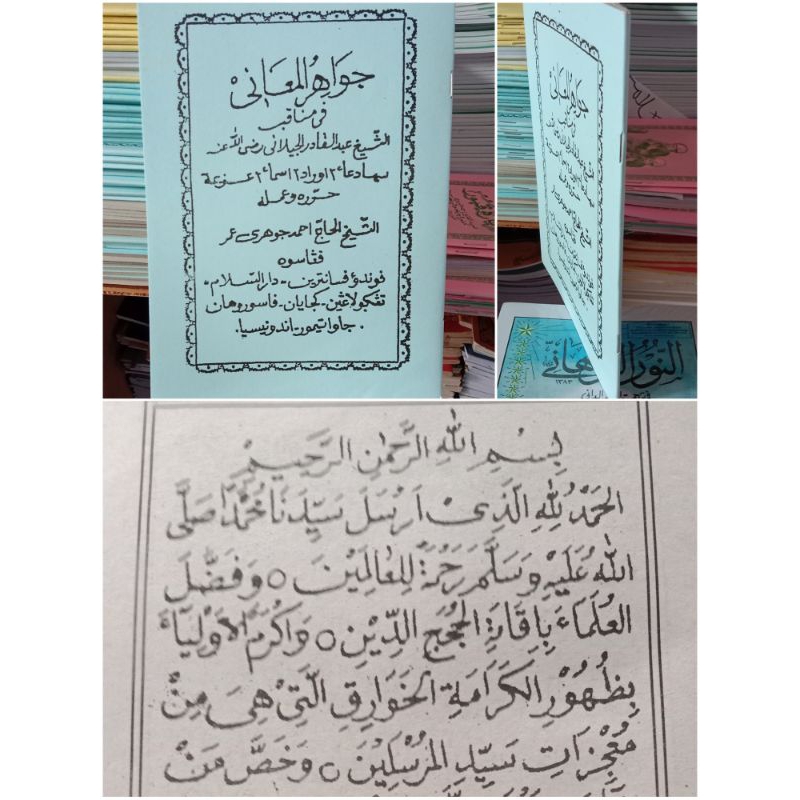 جواهر المعانى
فى مناقب
الشيخ عبد القادر الجيلانى رضى الله عنه
حرره وعمله
الشيخ الحاج احمد جوهرى عمر
فڠاسوه
فوندؤ فسانترين - دار السلام -
تڠكولاڠين - كجايان - فاسوروهان
جاوا تيمور - اندونيسيا.
جواهر المعانى
النور البرهانى
١٣٨٣
بِسْمِ اللهِ الرَّحْمٰنِ الرَّحِيْمِ
الحَمْدُ لِلّٰهِ الَّذِىْ اَرْسَلَ سَيِّدَنَا مُحَمَّدًا صَلَّى
اللهُ عَلَيْهِ وَسَلَّمَ رَحْمَةً لِلْعَالَمِيْنَ ○ وَفَضَّلَ
العُلَمَاءَ بِاِقَامَةِ الحُجَجِ الدِّيْنِ ○ وَاَكْرَمَ الاَوْلِيَآءَ
بِظُهُوْرِ الكَرَامَةِ الخَوَارِقِ الَّتِىْ هِىَ مِنْ
مُعْجِزَاتِ سَيِّدِ المُرْسَلِيْنَ ○ وَخَصَّ مَنْ